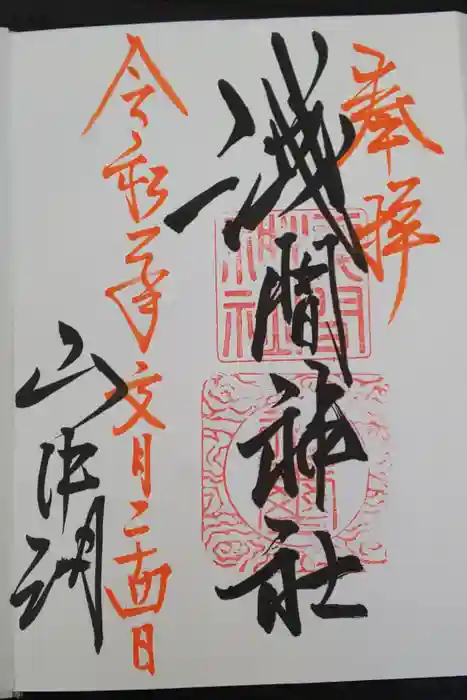 奉拝
浅間神社
令和二年文月二十四日
山中湖